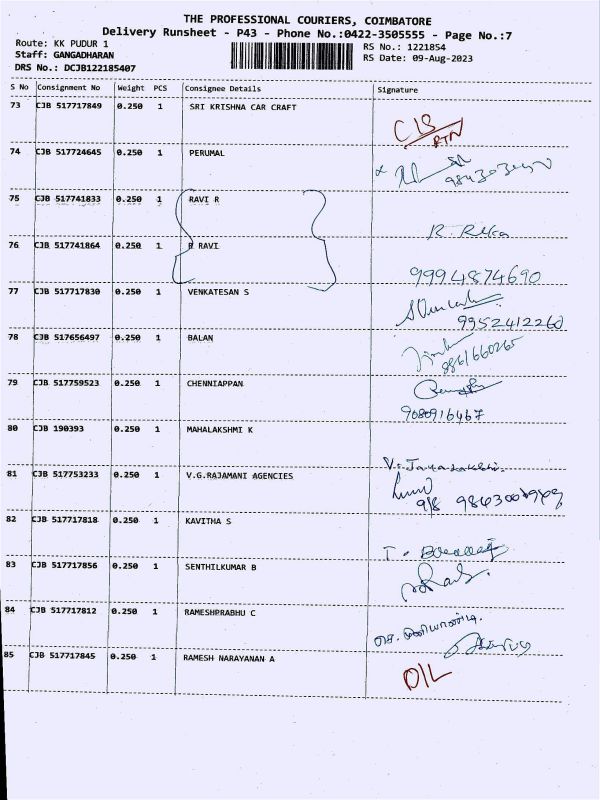 THE PROFESSIONAL COURIERS, COIMBATORE
Delivery Runsheet - P43 - Phone No.:0422-3505555 - Page No.:7
Route: KK PUDUR 1
RS No.: 1221854
Staff: GANGADHARAN
RS Date: 09-Aug-2023
DRS No.: DCJB122185407
S No Consignment No Weight PCS Consignee Details Signature
73 CJB 517717849 0.250 1 SRI KRISHNA CAR CRAFT
RTN
74 CJB 517724645 0.250 1 PERUMAL
75 CJB 517741833 0.250 1 RAVI R
R. Reka
76 CJB 517741864 0.250 1 R RAVI
9994874690
77 CJB 517717830 0.250 1 VENKATESAN S
9952412260
78 CJB 517656497 0.250 1 BALAN
79 CJB 517759523 0.250 1 CHENNIAPPAN
9080916467
80 CJB 190393 0.250 1 MAHALAKSHMI K
81 CJB 517753233 0.250 1 V.G.RAJAMANI AGENCIES
9/8
82 CJB 517717818 0.250 1 KAVITHA S
83 CJB 517717856 0.250 1 SENTHILKUMAR B
84 CJB 517717812 0.250 1 RAMESHPRABHU C
85 CJB 517717845 0.250 1 RAMESH NARAYANAN A
O/L